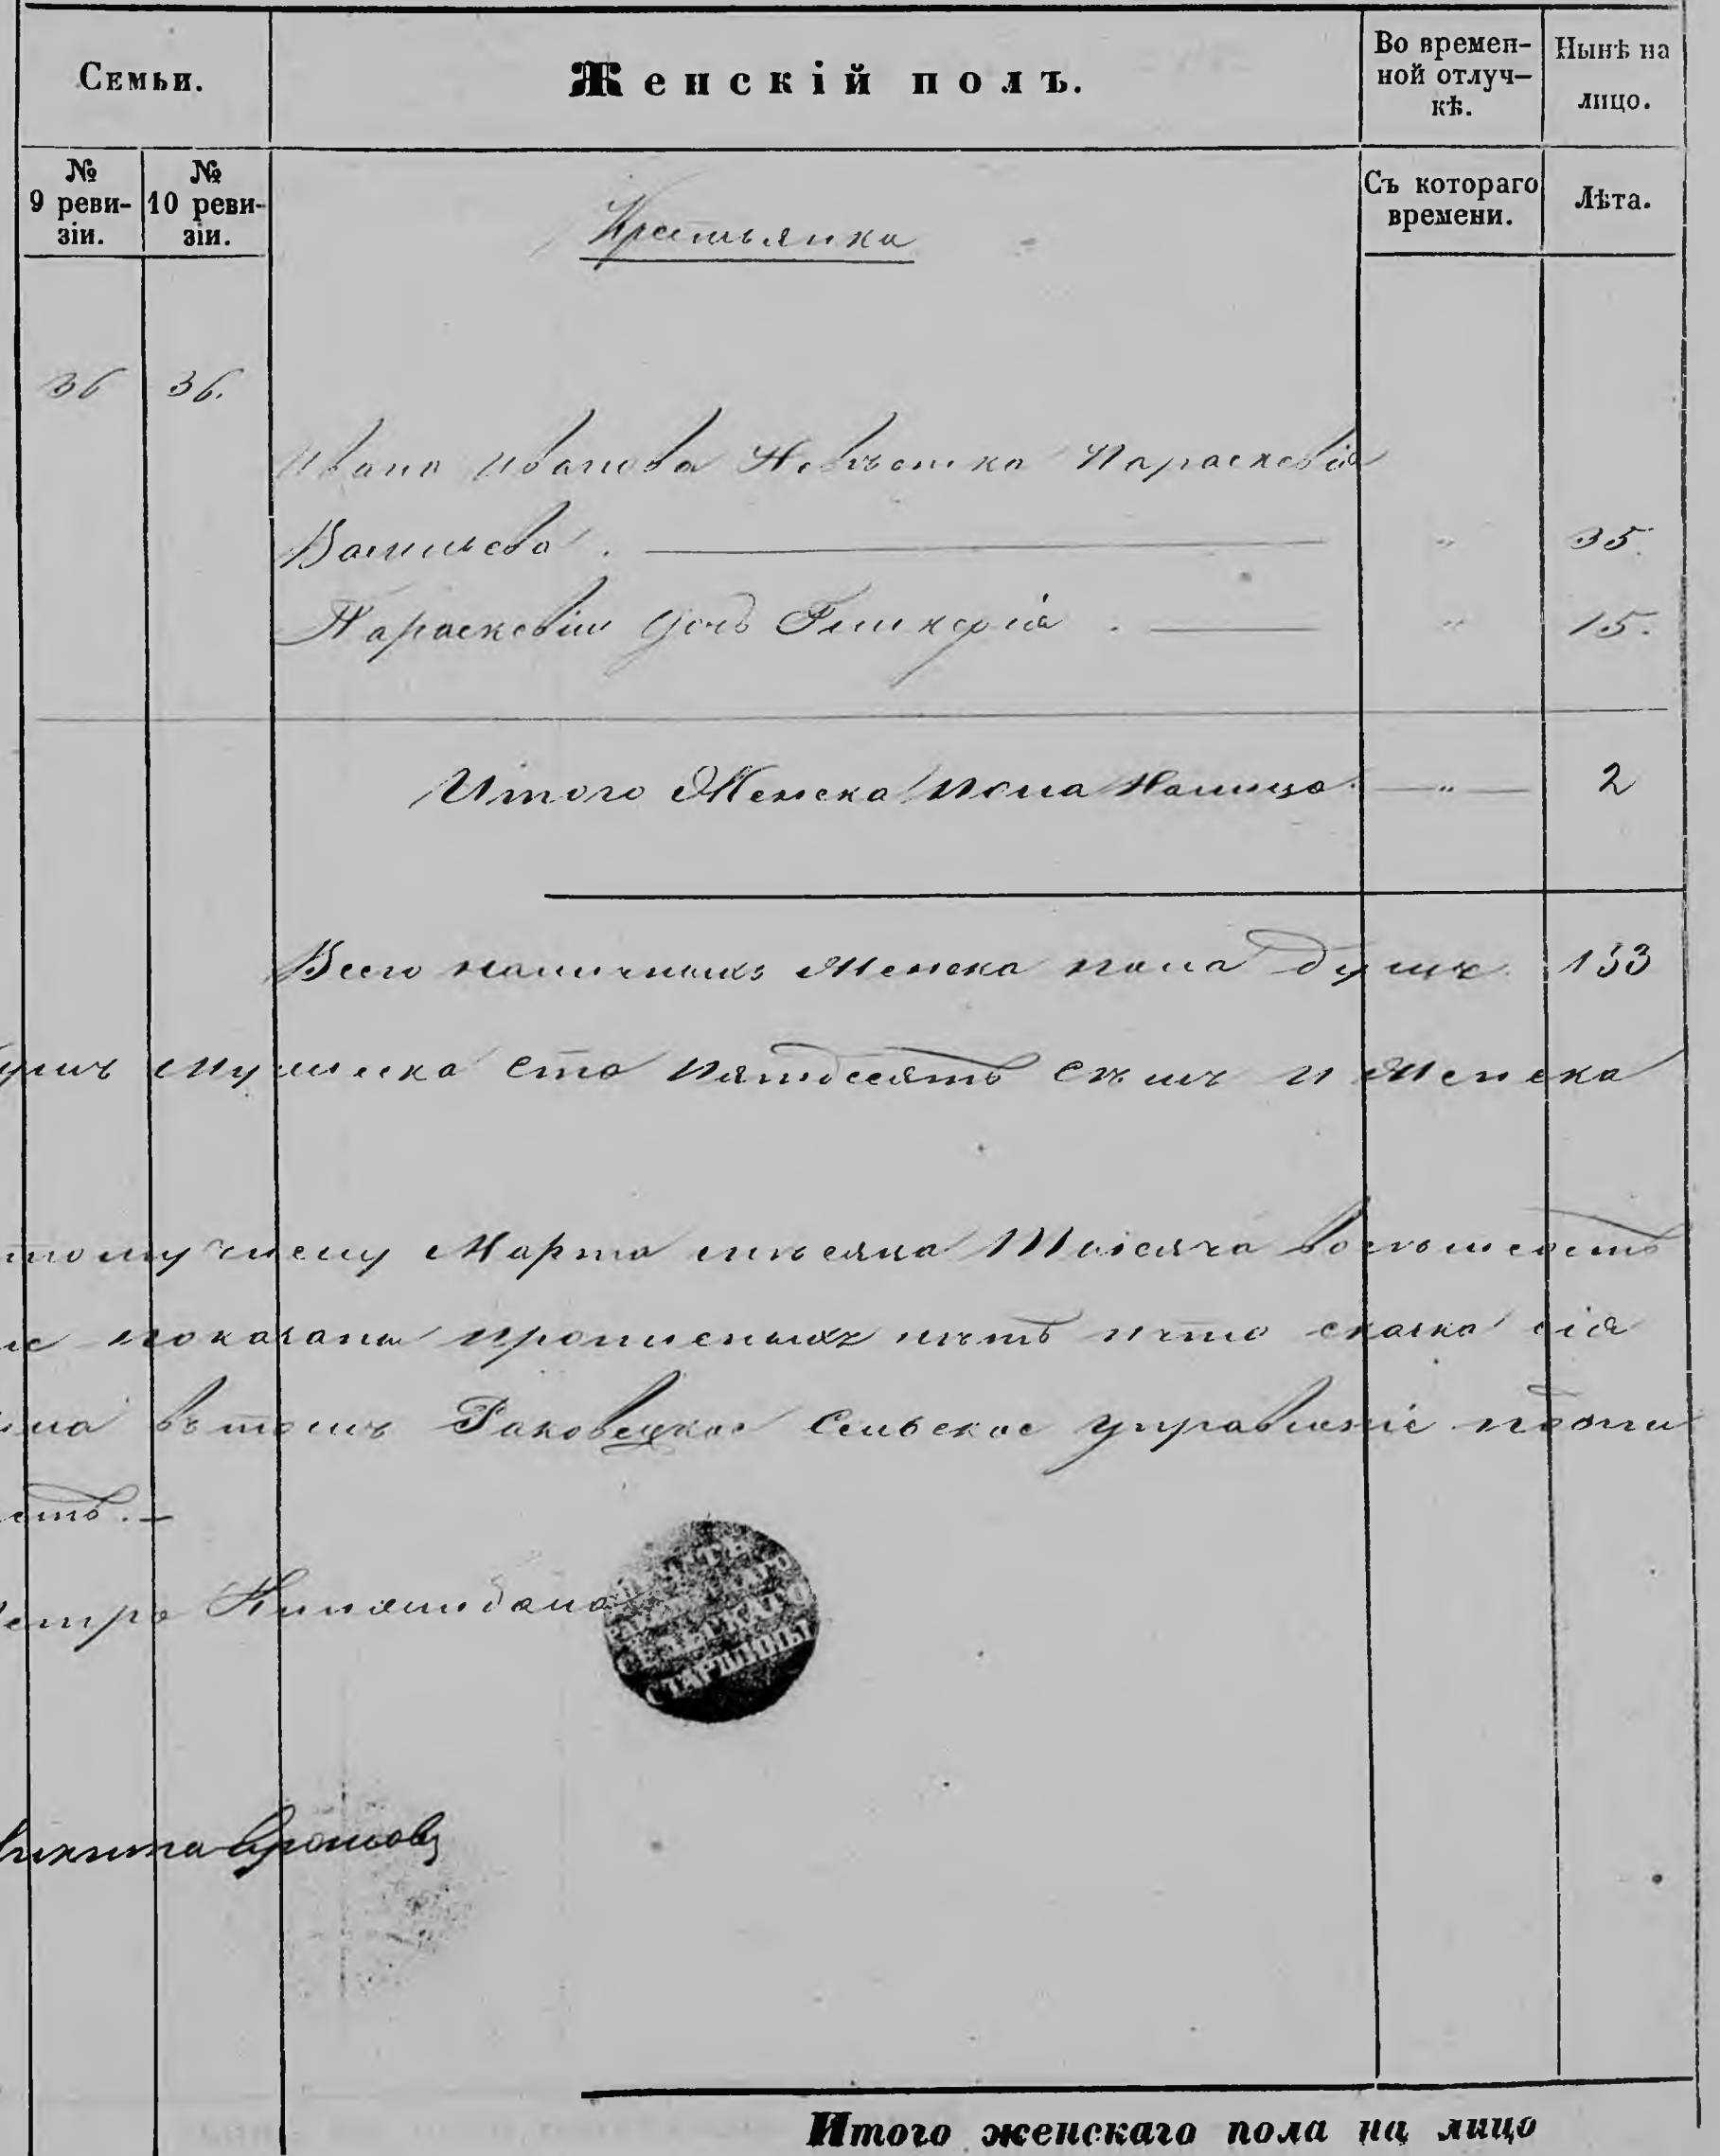 Семьи.
Женскій полъ.
Во времен-
ной отлуч-
кѣ.
Нынѣ на
лицо.
№
9 реви-
зіи.
№
10 реви-
зіи.
Съ котораго
времени.
Лѣта.
Крестьянка
36 36.
Ивана Иванова Невѣстка Параскевія
Васильева . — " 35.
Параскевіи дочь Гликерія . — " 15.
Итого Женска пола Налицо. — " — 2
Всего наличныхъ Женска пола душъ 133
душъ Мужеска сто пятдесятъ семъ и Женска
числу Марта мѣсяца Тысяча восемьсотъ
показаны прописныхъ нѣтъ сказка сія
въ томъ Раковецкое Сельское управленіе подпи
Петръ
СЕЛЬСКАГО
СТАРШИНЫ
Никита
Итого женскаго пола на лицо